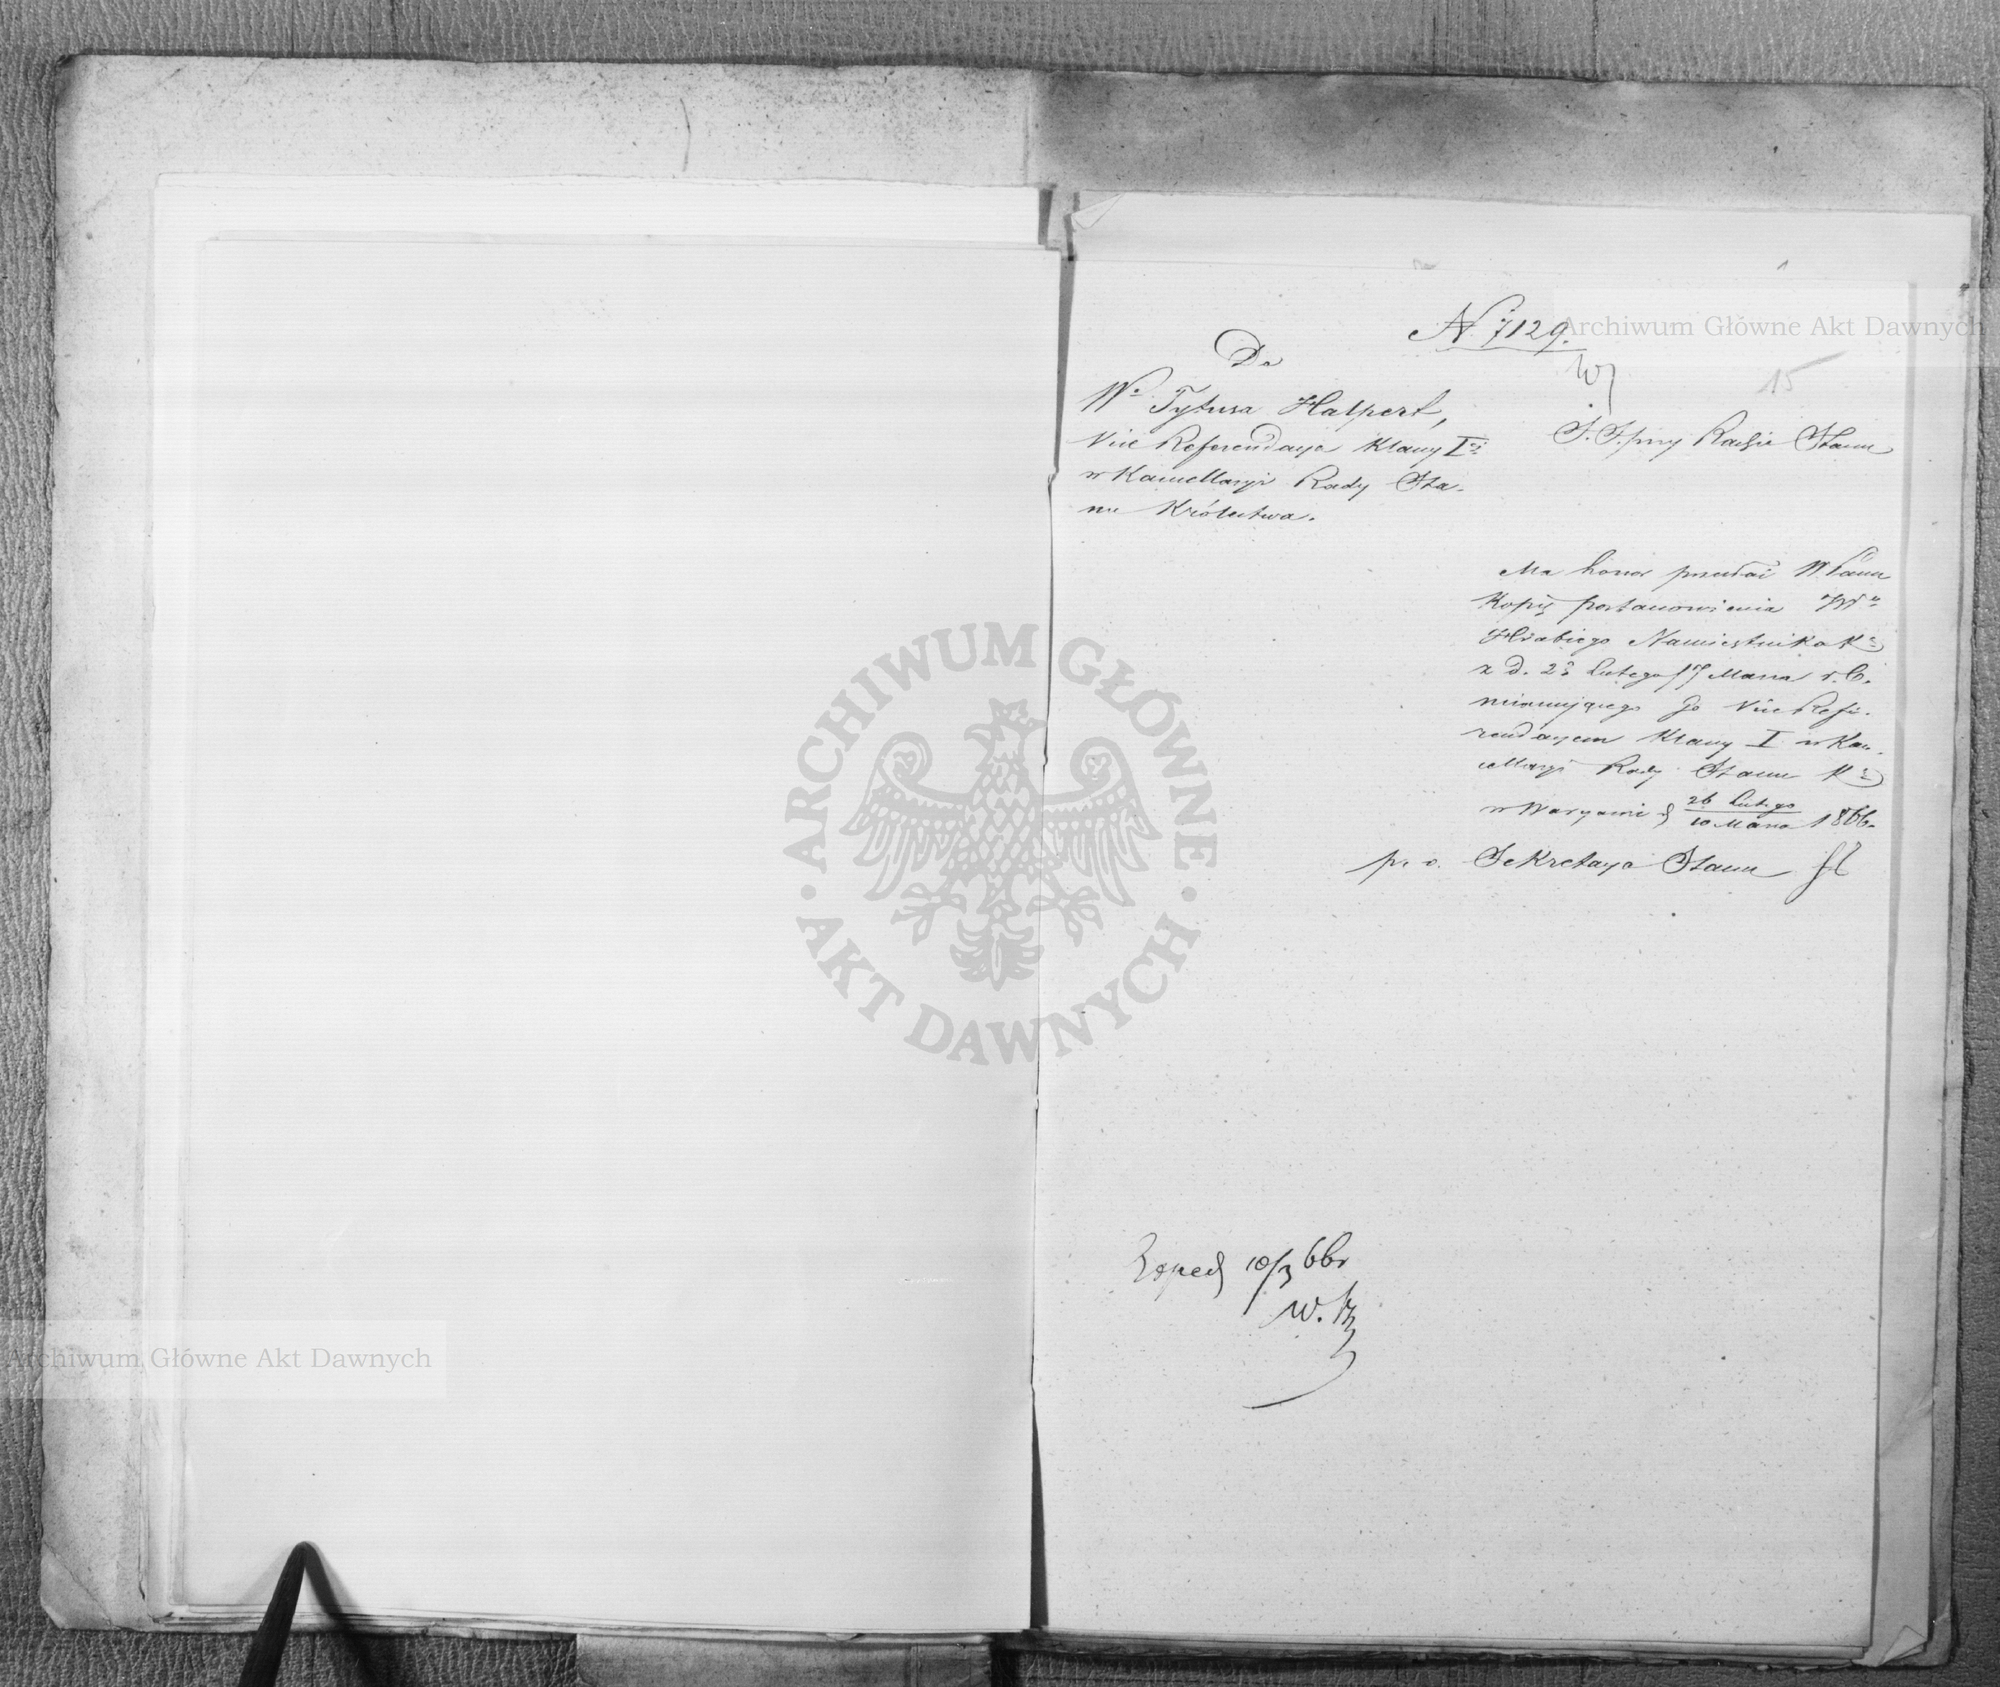 N 7129.
Do
Wo Tytusa Halpert,
Vice Referendarza Klassy Iej
w Kancellaryi Rady Sta-
nu Królestwa.
15
S. S. przy Radzie Stanu
Ma honor przesłać WPanu
Kopię postanowienia JW
Hrabiego Namiestnika K
z d. 23 Lutego / 7 Marca r. b.
mianującego Go Vice Refe-
rendarzem Klassy I w Kan-
cellaryi Rady Stanu K
w Warszawie d 26 Lutego / 10 Marca 1866.
p. o. Sekretarza Stanu
Exped 10/3 66r
W.
ARCHIWUM GŁÓWNE
AKT DAWNYCH
Archiwum Główne Akt Dawnych
Archiwum Główne Akt Dawnych